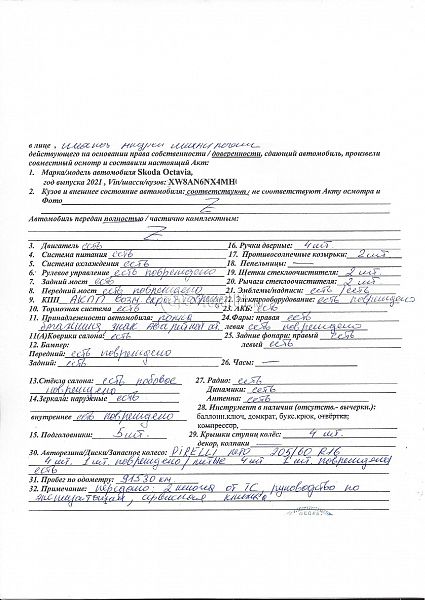 в лице,
действующего на основании права собственности / доверенности, сдающий автомобиль, произвели
совместный осмотр и составили настоящий Акт:
1. Марка/модель автомобиля Skoda Octavia,
год выпуска 2021 , Vin/шасси/кузов: XW8AN6NX4MH
2. Кузов и внешнее состояние автомобиля: соответствуют / не соответствуют Акту осмотра и
Фото Z
Автомобиль передан полностью / частично комплектным:
Z
3. Двигатель есть 16. Ручки дверные: 4 шт.
4. Система питания есть 17. Противосолнечные козырьки: 2 шт
5. Система охлаждения есть 18. Пепельницы: —
6. Рулевое управление есть повреждено 19. Щетки стеклоочистителя: 2 шт
7. Задний мост есть 20. Рычаги стеклоочистителя: 2 шт
8. Передний мост есть повреждено 21. Эмблемы/надписи: есть / есть
9. КПП АКПП Электрооборудование: есть повреждено
10. Тормозная система есть 23. АКБ: есть
11. Принадлежности автомобиля: 24. Фары: правая есть
знак аварийной ост. левая есть повреждено
11(А)Коврики салона: есть 25. Задние фонари: правый есть
12. Бампер: левый есть
Передний: есть повреждено
Задний: есть 26. Часы: —
13.Стёкла салона: есть лобовое 27. Радио: есть
повреждено Динамики: есть
14.Зеркала: наружные есть Антенна: есть
28. Инструмент в наличии (отсутств.- вычеркн.):
внутреннее есть повреждено баллонн.ключ, домкрат, букс.крюк, отвёртка,
компрессор,
15. Подголовники: 5 шт. 29. Крышки ступиц колёс: 4 шт
декор, колпаки —
30. Авторезина/Диски/Запасное колесо: PIRELLI лето 205/60 R16
4 шт. 1 шт. повреждено, литые 4 шт 1 шт. повреждены
есть
31. Пробег по одометру: 91530 км
32. Примечание: передано: 2 ключа от ТС, руководство по
эксплуатации, сервисная книжка